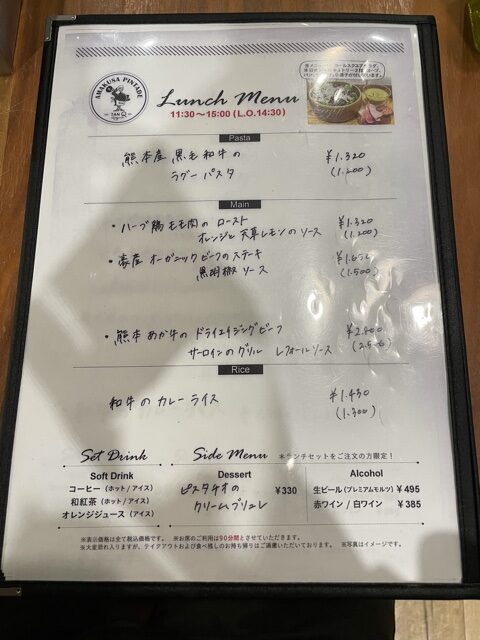 AMAKUSA PINTADE
TAN Q
Lunch Menu
11:30～15:00 (L.O.14:30)
Pasta
熊本産 黒毛和牛の
ラグーパスタ
¥1.320
(1.200)
Main
・ハーブ鶏モモ肉の ロースト
オレンジと 天草レモンの ソース
¥1.320
(1.200)
・豪産 オーガニックビーフのステーキ
黒胡椒 ソース
(1.500)
・熊本 あか牛の ドライエイジングビーフ
サーロインのグリル レフォールソース
Rice
和牛の カレーライス
¥1.430
(1.300)
Set Drink
Side Menu
※ランチセットをご注文の方限定！
Soft Drink
コーヒー（ホット / アイス）
和紅茶（ホット / アイス）
オレンジジュース（アイス）
Dessert
ピスタチオの
クリームブリュレ
¥330
Alcohol
生ビール（プレミアムモルツ） ¥495
赤ワイン / 白ワイン ¥385
※表示価格は全て税込価格です。 ※お席のご利用は90分間とさせていただきます。
※大変恐れ入りますが、テイクアウトおよび食べ残しのお持ち帰りはご遠慮いただいております。 ※写真はイメージです。